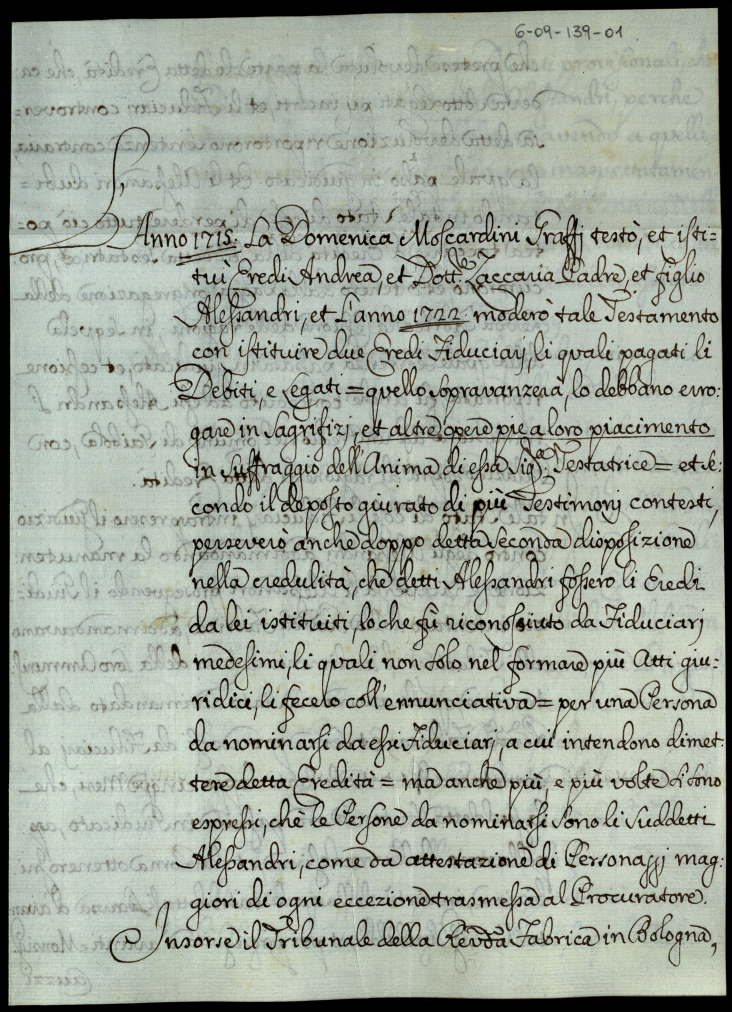 6-09-139-01
L'Anno 1715. La Domenica Moscardini Graffi testò, et isti=
tuì Eredi Andrea, et Dott.re Zaccaria Padre, et figlio
Alessandri, et l'anno 1722 moderò tale Testamento
con istituire due Eredi Fiduciarj, li quali pagati li
Debiti, e Legati = quello sopravanzerà, lo debbano ero:
gare in Sagrifizj, et altre opere pie a loro piacimento
in Suffraggio dell'Anima di essa Sig.ra Testatrice = et se:
condo il deposto giurato di più Testimonj contesti,
perseverò anche doppo detta seconda disposizione
nella credulità, che detti Alessandri fossero li Eredi
da lei istituiti, lo che fù riconossiuto da Fiduciarj
medesimi, li quali non solo nel formare più Atti giu:
ridici, li fecero coll'ennunciativa = per una Persona
da nominarsi da essi Fiduciarj, a cui intendono dimet:
tere detta Eredità = ma anche più, e più volte si sono
espressi, che le Persone da nominarsi sono li suddetti
Alessandri, come da attestazione di Personaggi mag:
giori di ogni eccezione trasmessa al Procuratore.
Insorse il Tribunale della Rev.da Fabrica in Bologna,